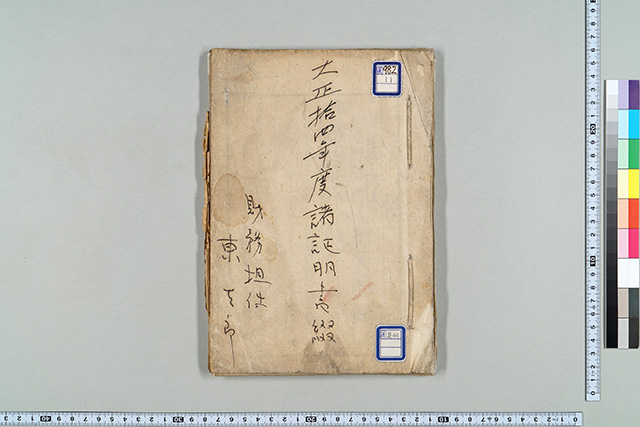 大正拾四年度諸証明書綴
財務担任
東吉郎
982
11